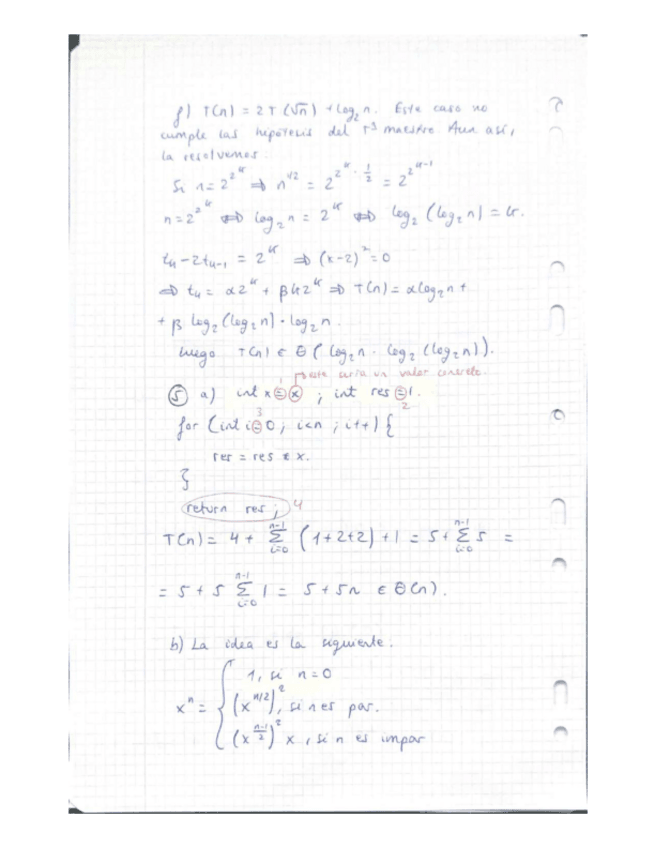 f) T(n) = 2T(√n) + log₂ n. Este caso no
cumple las hipótesis del Tª maestro. Aun así,
la resolvemos:
Si n = 2^(2^k) ⇒ n^(1/2) = 2^(2^k · 1/2) = 2^(2^(k-1))
n = 2^(2^k) ⇔ log₂ n = 2^k ⇔ log₂(log₂ n) = k.
t_k - 2t_(k-1) = 2^k ⇒ (x-2)² = 0
⇒ t_k = α2^k + βk2^k ⇒ T(n) = α log₂ n +
+ β log₂(log₂ n) · log₂ n.
luego T(n) ∈ Θ(log₂ n · log₂(log₂ n)).
→ este sería un valor concreto.
⑤ a) int x = x ; int res = 1.
1 2
3
for (int i=0; i<n; i++) {
res = res * x.
}
return res; 4
T(n) = 4 + Σ_(i=0)^(n-1) (1+2+2) + 1 = 5 + Σ_(i=0)^(n-1) 5 =
= 5 + 5 Σ_(i=0)^(n-1) 1 = 5 + 5n ∈ Θ(n).
b) La idea es la siguiente.
1, si n = 0
x^n = { (x^(n/2))², si n es par.
(x^((n-1)/2))² x, si n es impar